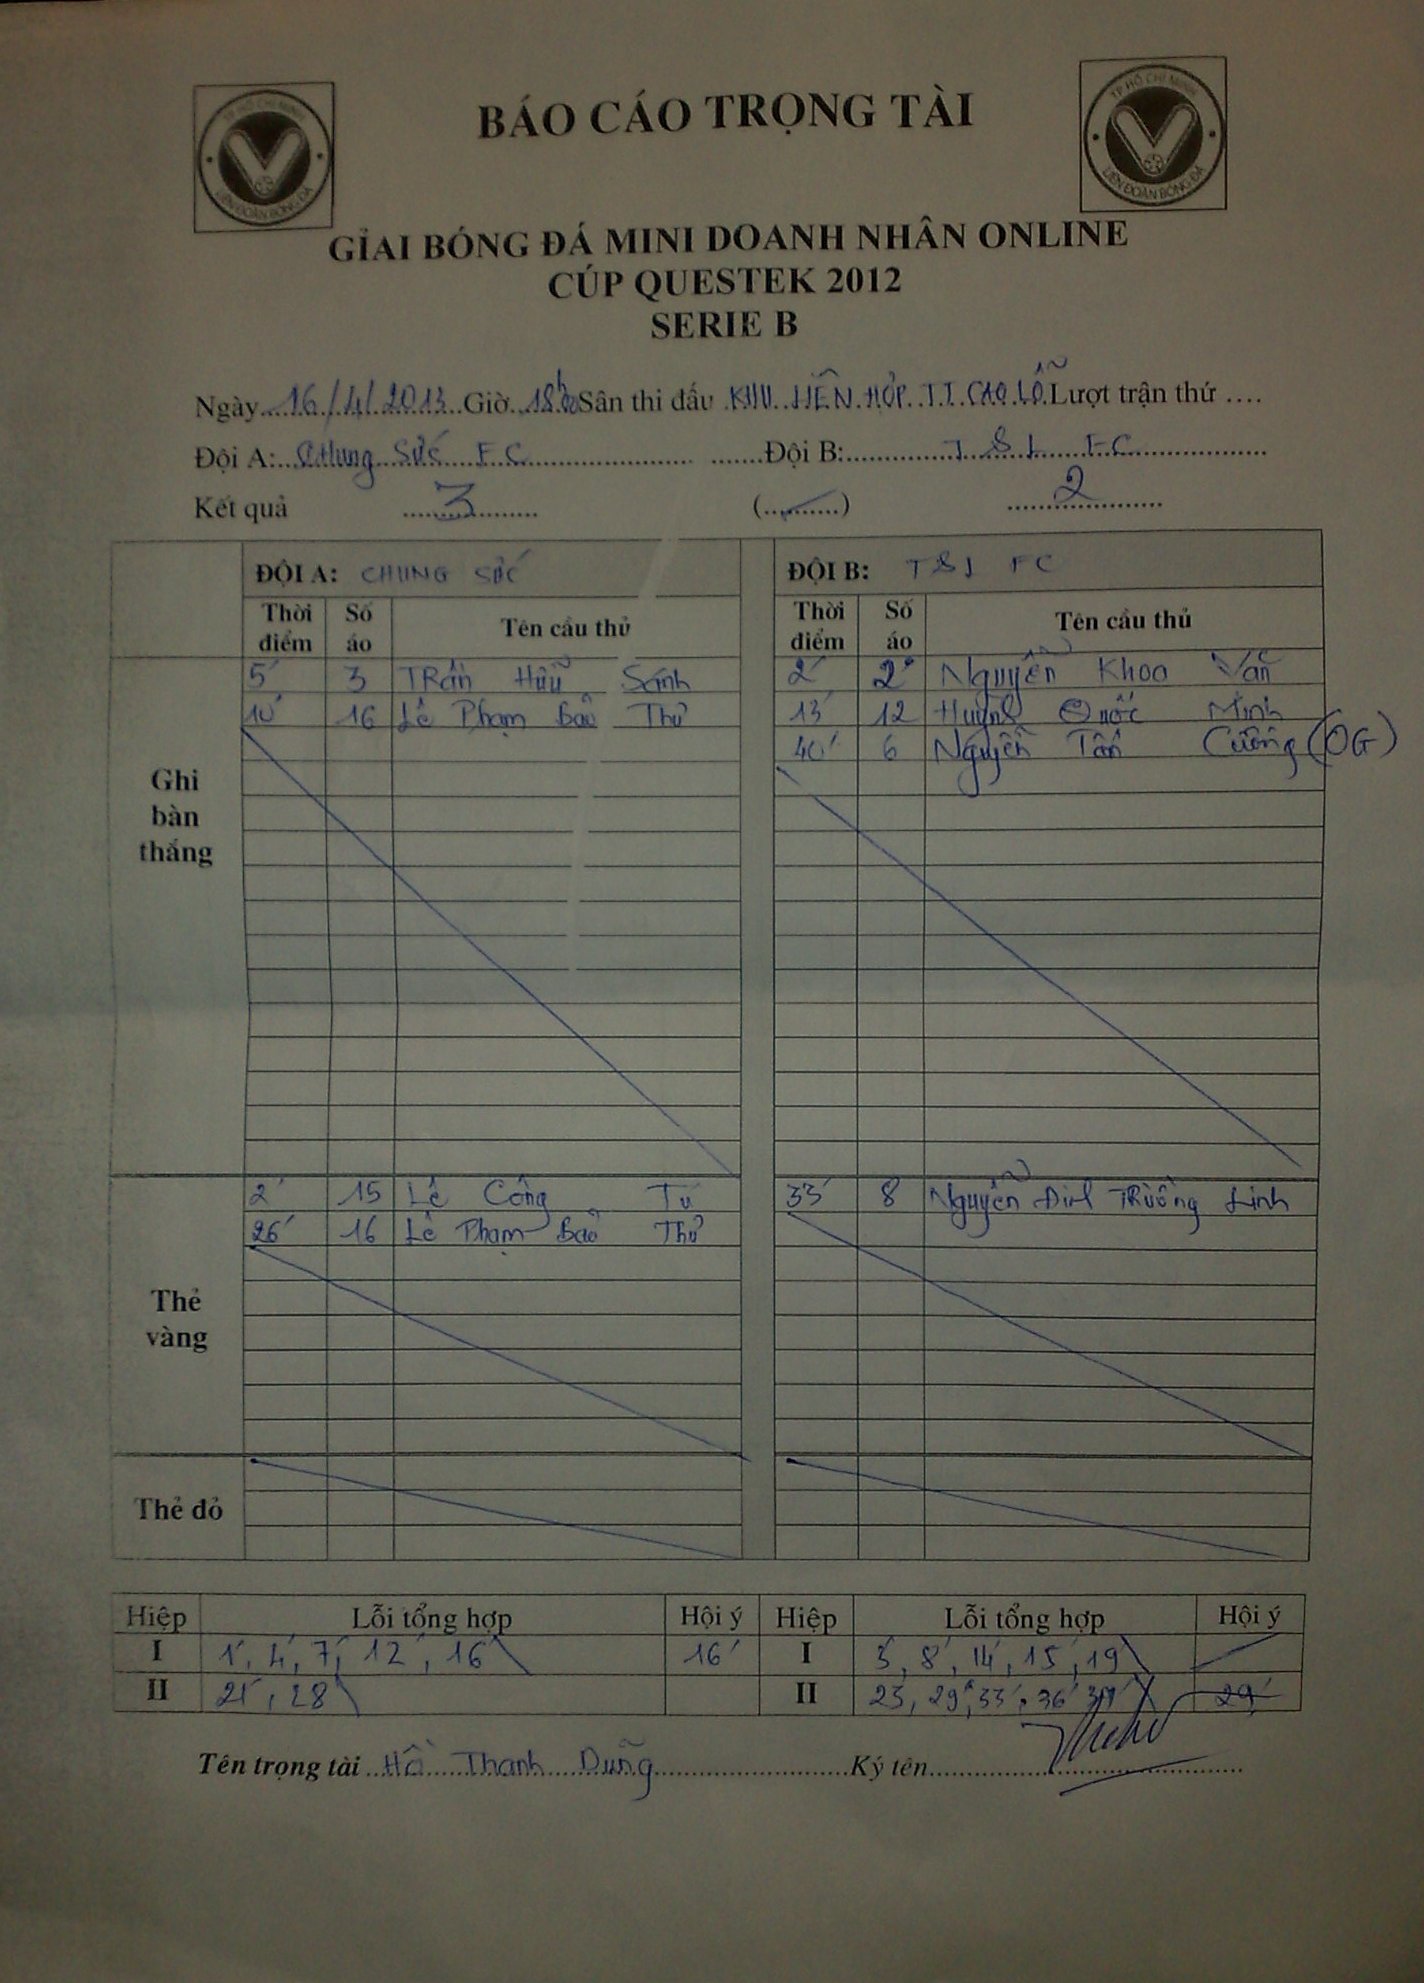 TP HỒ CHÍ MINH
LIÊN ĐOÀN BÓNG ĐÁ
BÁO CÁO TRỌNG TÀI
TP HỒ CHÍ MINH
LIÊN ĐOÀN BÓNG ĐÁ
GIẢI BÓNG ĐÁ MINI DOANH NHÂN ONLINE
CÚP QUESTEK 2012
SERIE B
Ngày....16/4/2013...Giờ...18h00 Sân thi đấu .KHU LIÊN HỢP T.T CAO LỖ.Lượt trận thứ ....
Đội A:...Chung Sức FC........Đội B:.......FC.......
Kết quả 3 (.........) 2
ĐỘI A: CHUNG SỨC ĐỘI B: FC
Thời điểm Số áo Tên cầu thủ Thời điểm Số áo Tên cầu thủ
Ghi bàn thắng
5' 3 Trần Hữu Sánh 2' 2 Nguyễn Khoa Văn
10' 16 Lê Phạm Bảo Thư 13' 12 Huỳnh Quốc Minh
40' 6 Nguyễn Tấn Cường (OG)
Thẻ vàng
2' 15 Lê Công Tú 33' 8 Nguyễn Đình Trường Linh
26' 16 Lê Phạm Bảo Thư
Thẻ đỏ
Hiệp Lỗi tổng hợp Hội ý Hiệp Lỗi tổng hợp Hội ý
I 1', 4', 7', 12', 16' 16' I 3', 8', 14', 15', 19'
II 21', 28' II 23', 29', 33', 36' 29'
Tên trọng tài ...Hồ Thanh Dũng.......Ký tên.......